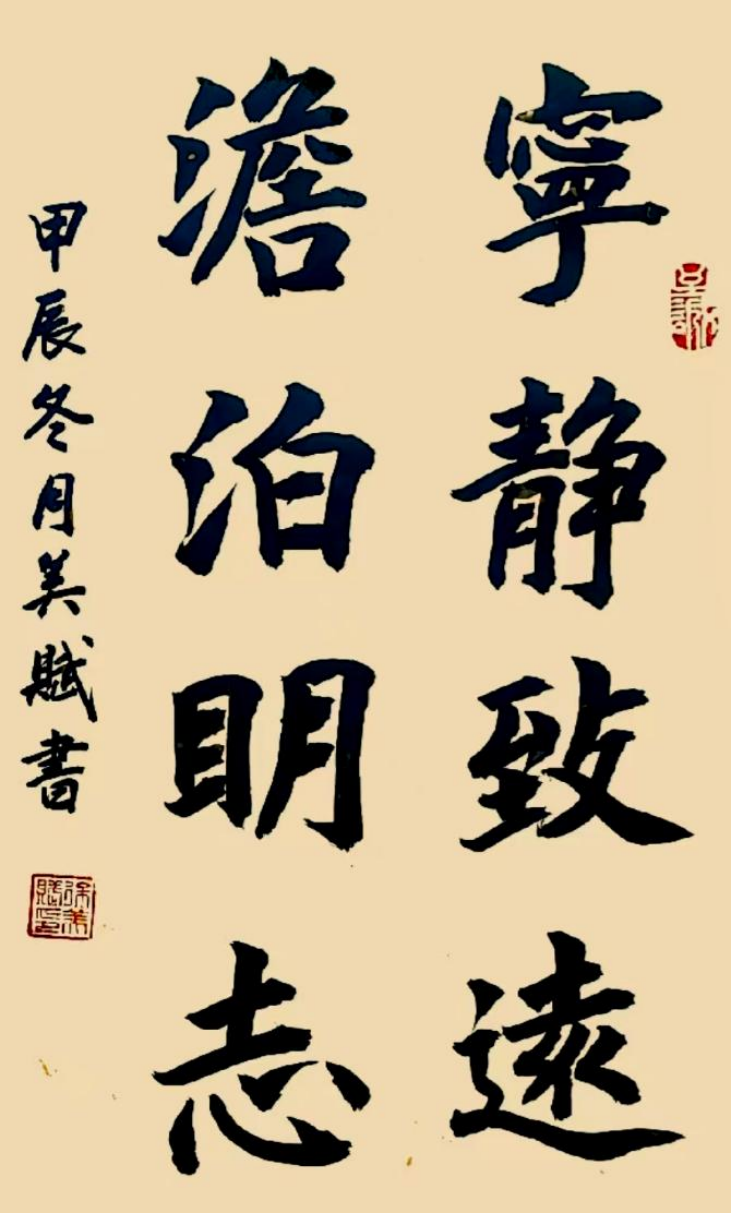 寧静致遠
澹泊眀志
甲辰冬月美賦書